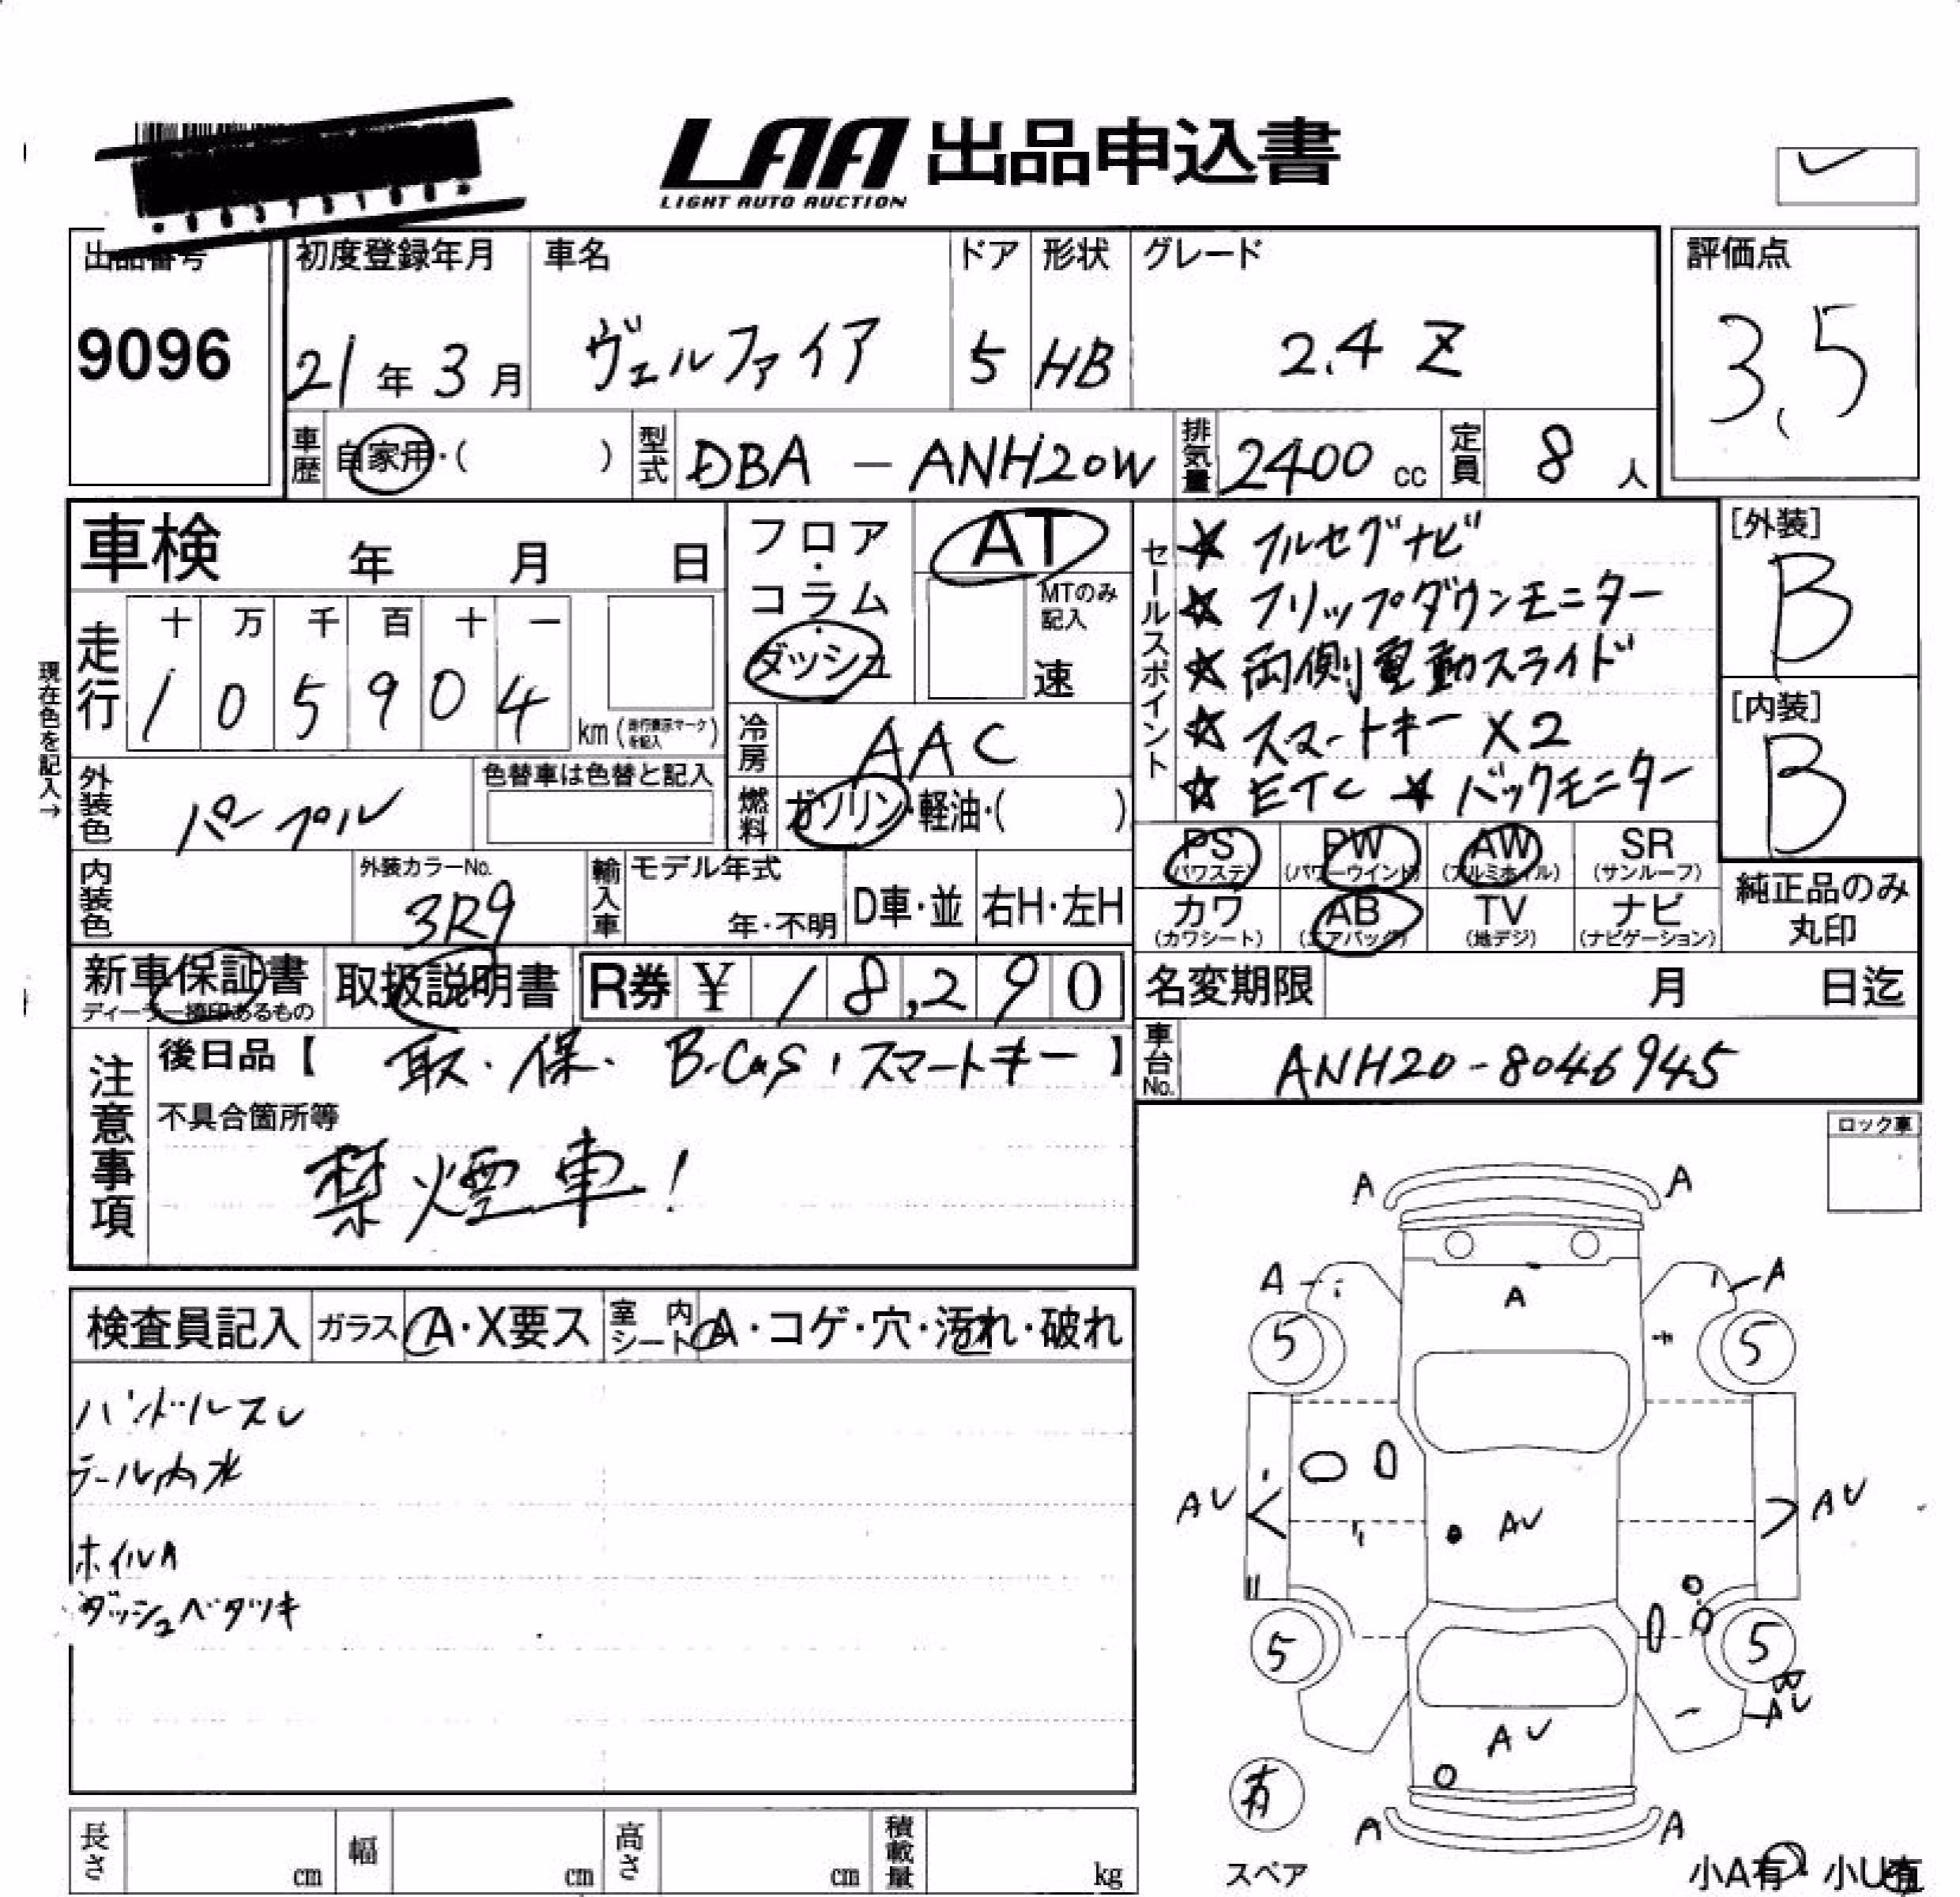 LAA 出品申込書
LIGHT AUTO AUCTION
出品番号
9096
初度登録年月
21年3月
車名
ヴェルファイア
ドア
5
形状
HB
グレード
2.4 Z
評価点
3.5
車歴 自家用・( )
型式 DBA - ANH20W
排気量 2400 cc
定員 8 人
車検 年 月 日
フロア・コラム・ダッシュ
AT
MTのみ記入
速
セールスポイント
☆ フルセグナビ
☆ フリップダウンモニター
☆ 両側電動スライド
☆ スマートキー X2
☆ ETC ☆ バックモニター
[外装]
B
[内装]
B
現在色を記入→
走行
十 万 千 百 十 一
1 0 5 9 0 4 km (走行表示マークを記入)
冷房 AAC
外装色 パープル
色替車は色替と記入
燃料 ガソリン・軽油・( )
PS (パワステ)
PW (パワーウインド)
AW (アルミホイル)
SR (サンルーフ)
カワ (カワシート)
AB (エアバッグ)
TV (地デジ)
ナビ (ナビゲーション)
純正品のみ丸印
内装色
外装カラーNo.
3R9
輸入車
モデル年式
年・不明
D車・並
右H・左H
新車保証書
ディーラー捺印あるもの
取扱説明書
R券 ¥ 18,290
名変期限 月 日迄
車台No. ANH20-8046945
注意事項
後日品【 取・保・B-CaS、スマートキー 】
不具合箇所等
禁煙車!
ロック車
検査員記入
ガラス A・X要ス
室内シート A・コゲ・穴・汚れ・破れ
ハンドルスレ
テール内水
ホイルA
ダッシュベタツキ
A A
A A
A
5 5
AU AU AU
5 5
AU
AU
有
スペア
A A
小A有・小U有
長さ cm
幅 cm
高さ cm
積載量 kg